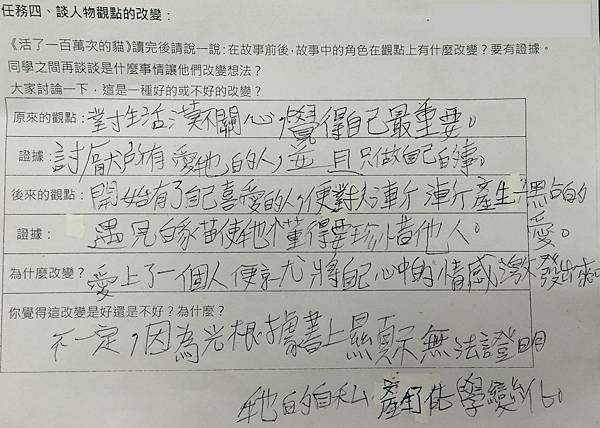 任務四、談人物觀點的改變：
《活了一百萬次的貓》讀完後請說一說：在故事前後，故事中的角色在觀點上有什麼改變？要有證據。
同學之間再談談是什麼事情讓他們改變想法？
大家討論一下，這是一種好的或不好的改變？
原來的觀點：對生活漠不關心，覺得自己最重要。
證據：討厭所有愛牠的人，並且只做自己的事。
後來的觀點：開始有了自己喜愛的人，便對人漸漸產生 的愛。
證據：遇見白貓使牠懂得要珍惜他人。
為什麼改變？愛上了一個人便京尤將自己心中的情感激發出來。
你覺得這改變是好還是不好？為什麼？
不一定，因為光根據書上顯示無法證明
牠的自私產生化學變化。